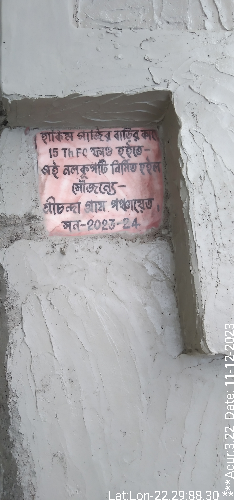 হাকিম গাজির বাড়ির কাছে
15 Th FC ফান্ড হইতে-
এই নলকুপটি নির্মিত হইল
সৌজন্যে-
শ্রীচন্দা গ্রাম পঞ্চায়েত,
সন-2023-24
Lat:Lon-22.29:88.30
***Acur:3.22 Date:11-12-2023